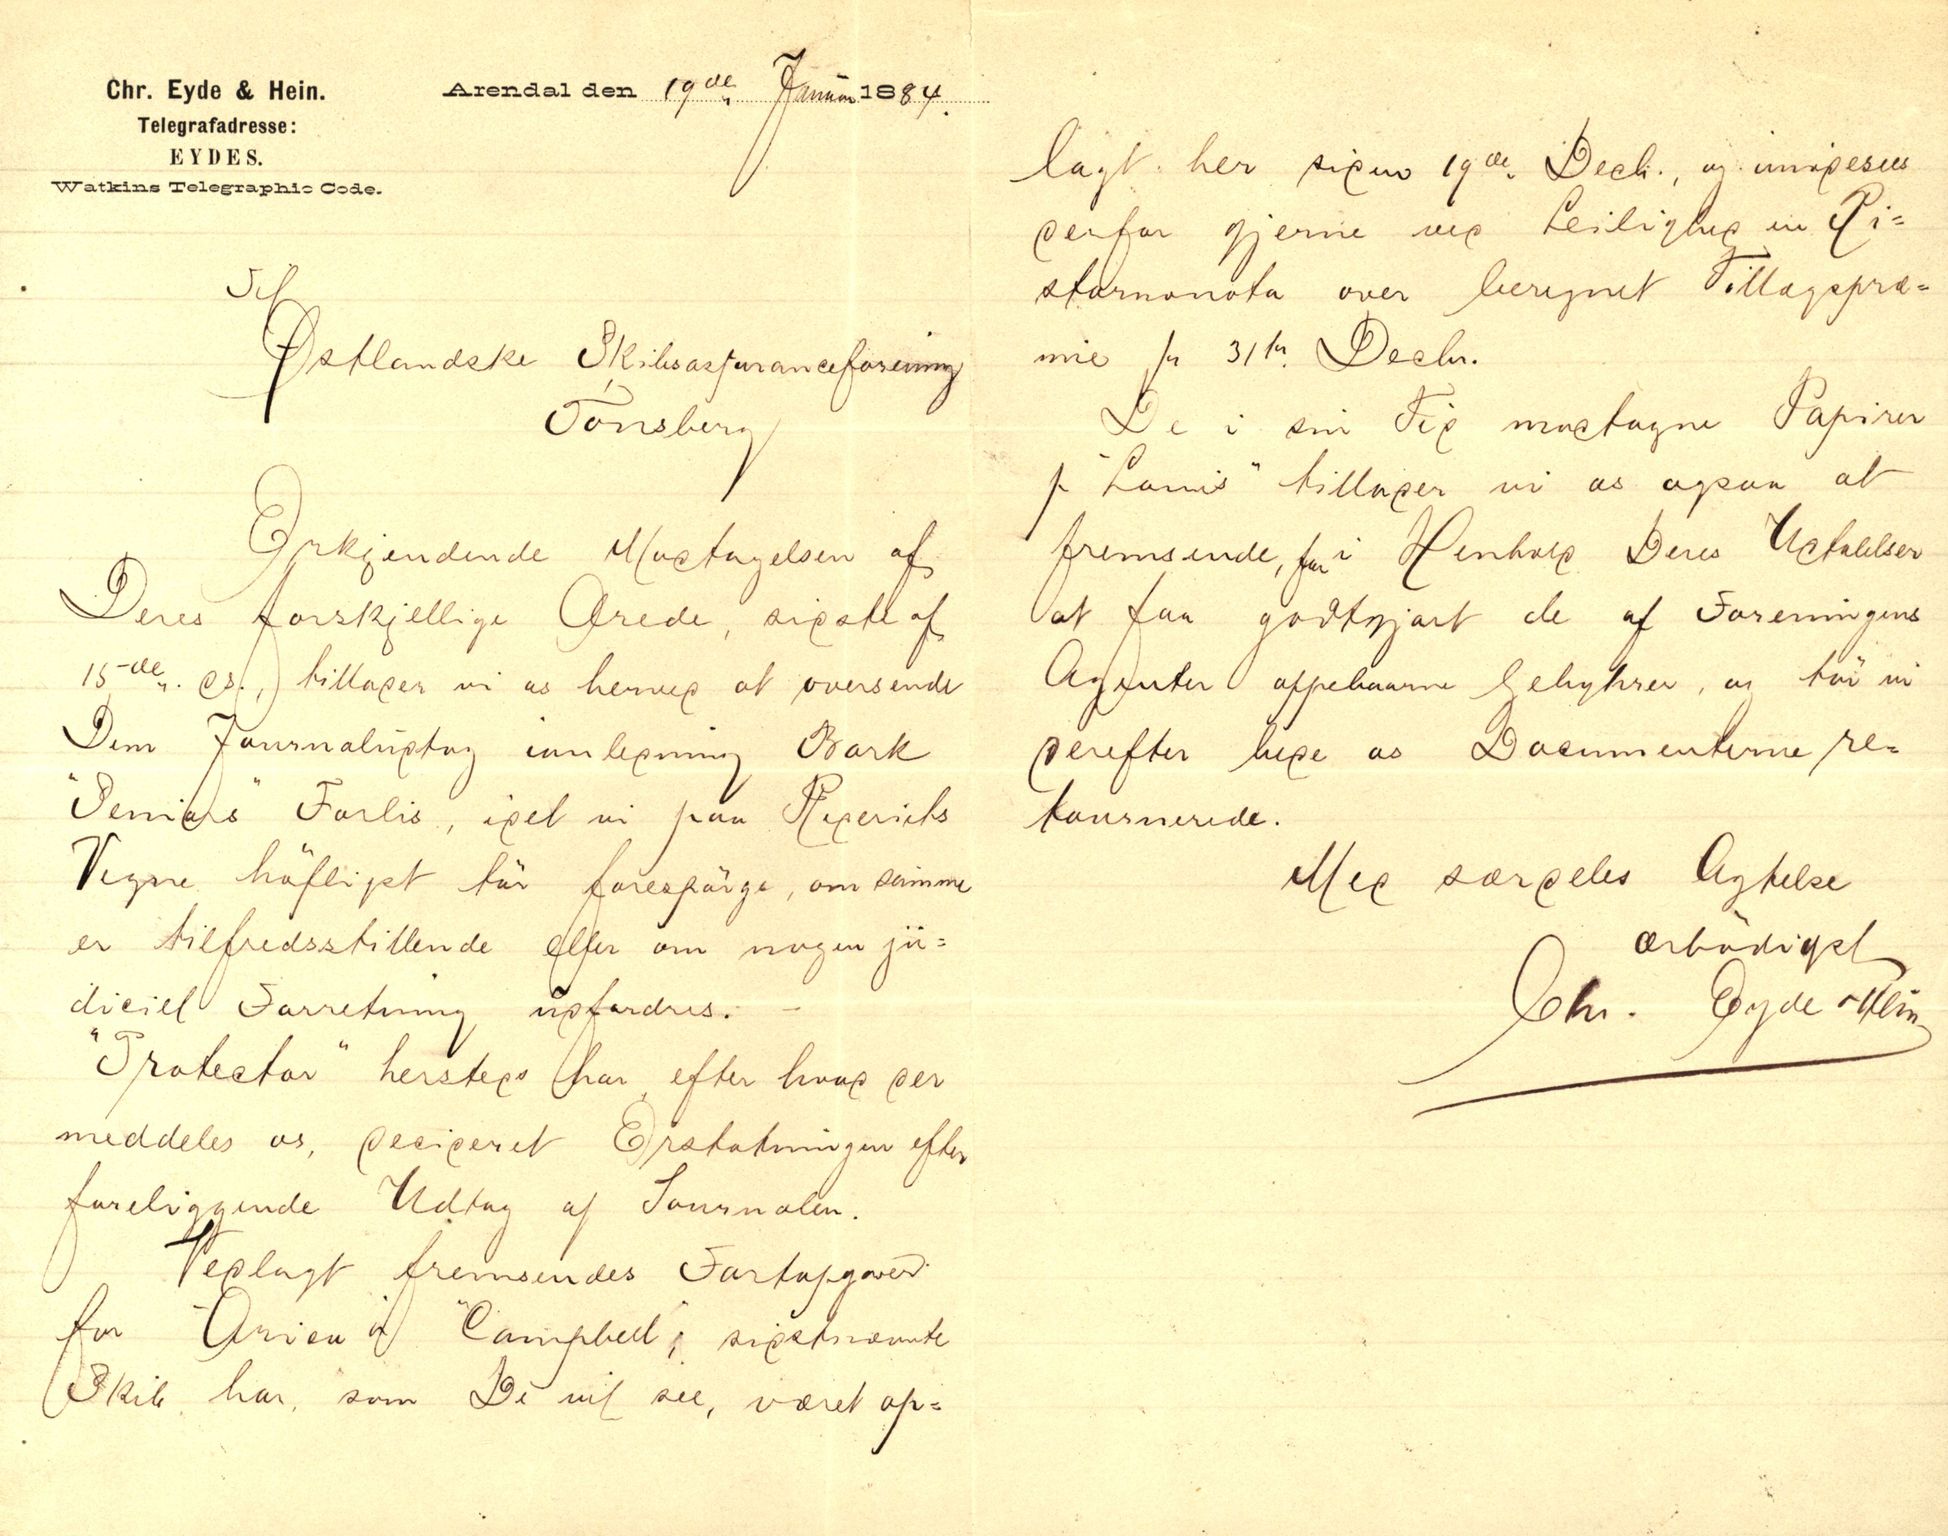 Chr. Eyde & Hein.
Telegrafadresse:
EYDES.
Watkins Telegraphic Code.
Arendal den 19de Januar 1884.
Til
Østlandske Skibsassuranceforening
Tönsberg
Erkjendende Modtagelsen af
Deres forskjellige Ærede, sidste af
15de ds., tillader vi os herved at oversende
Dem Journaludtog innledning Bark
"Deniors" Forlis, idet vi paa Rederiets
Vegne höfligst tör forespörge, om samme
er tilfredsstillende eller om nogen jü=
diciel Forretning udfordres. —
"Protector" hersteds har efter hvad der
meddeles os, decideret Erstatningen efter
foreliggende Udtog af Journalen.
Vedlagt fremsendes Fartopgaver
for "Arica" og "Campbell", sidstnævnte
Skib har, som De vil see, været op=
lagt her siden 19de Decbr., og imødesees
derfor gjerne ved Leilighed en Ri=
stornonota over beregnet Tillægspræ=
mie pr 31te Decbr.
De i sin Tid modtagne Papirer
pr "Louis" tillader vi os ogsaa at
fremsende, for i Henhold Deres Udtalelser
at faa godtgjort de af Foreningens
Agenter oppebaarne Gebyhrer, og tör vi
derefter bede os Documenterne re=
tournerede.
Med særdeles Agtelse
ærbödigst
Chr. Eyde & Hein